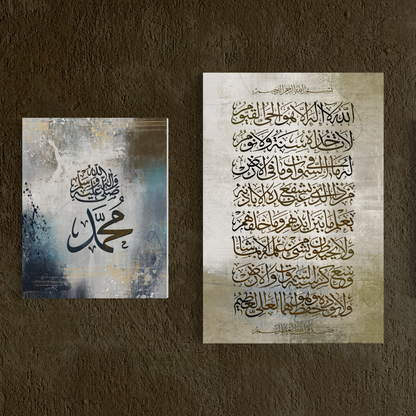 صلى الله عليه وآله وسلم
محمد
بسم الله الرحمن الرحيم
الله لا إله إلا هو الحي القيوم
لا تأخذه سنة ولا نوم
له ما في السموات وما في الأرض
من ذا الذي يشفع عنده إلا بإذنه
يعلم ما بين أيديهم وما خلفهم
ولا يحيطون بشيء من علمه إلا بما شاء
وسع كرسيه السموات والأرض
ولا يؤده حفظهما وهو العلي العظيم